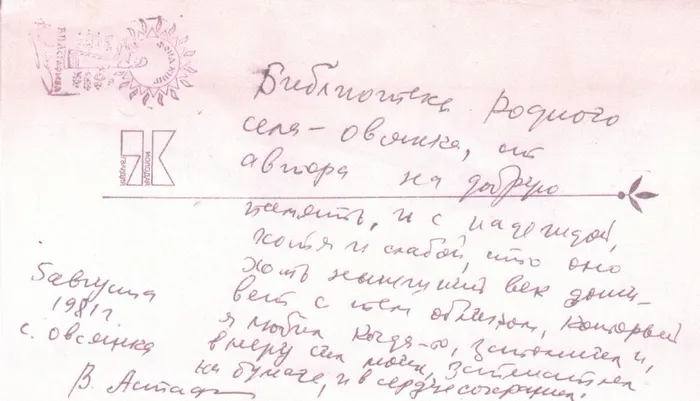 Библиотека родного
села – Овсянка, от
автора на добрую
память, и с надеждой,
хотя и слабой, что оно
хоть нынешний век дожи-
вет с тем обликом, который
я любил когда-то, запомнил и,
в меру сил моих, запечатлел
на бумаге, и в сердце сохранил.
5 августа
1981 г
с. Овсянка
В. Астаф
МОЛОДАЯ
ГВАРДИЯ
В.П. Астафьева